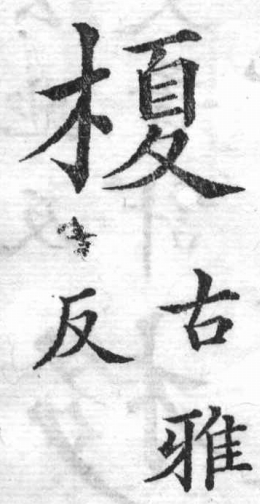 榎
古雅
反